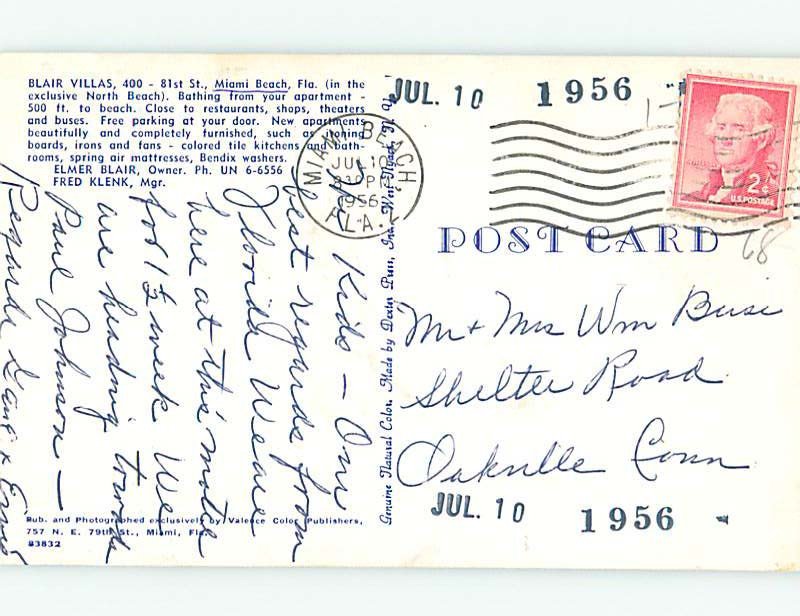 BLAIR VILLAS, 400 - 81st St., Miami Beach, Fla. (in the
exclusive North Beach). Bathing from your apartment -
500 ft. to beach. Close to restaurants, shops, theaters
and buses. Free parking at your door. New apartments
beautifully and completely furnished, such as ironing
boards, irons and fans - colored tile kitchens and bath-
rooms, spring air mattresses, Bendix washers.
ELMER BLAIR, Owner. Ph. UN 6-6556
FRED KLENK, Mgr.
Kids — Our
best regards from
Florida We are
here at this motel
for 1½ week We
are heading towards
Paul Johnson —
Regards
Pub. and Photographed exclusively by Valence Color Publishers,
757 N. E. 79th St., Miami, Fla.
83832
Genuine Natural Color. Made by Dexter Press, Inc., West Nyack, N. Y.
JUL. 10 1956
MIAMI BEACH,
JUL 10
PM
1956
FLA.
2¢
U.S. POSTAGE
68
POST CARD
Mr + Mrs Wm Busi
Shelter Road
Oakville Conn
JUL. 10 1956